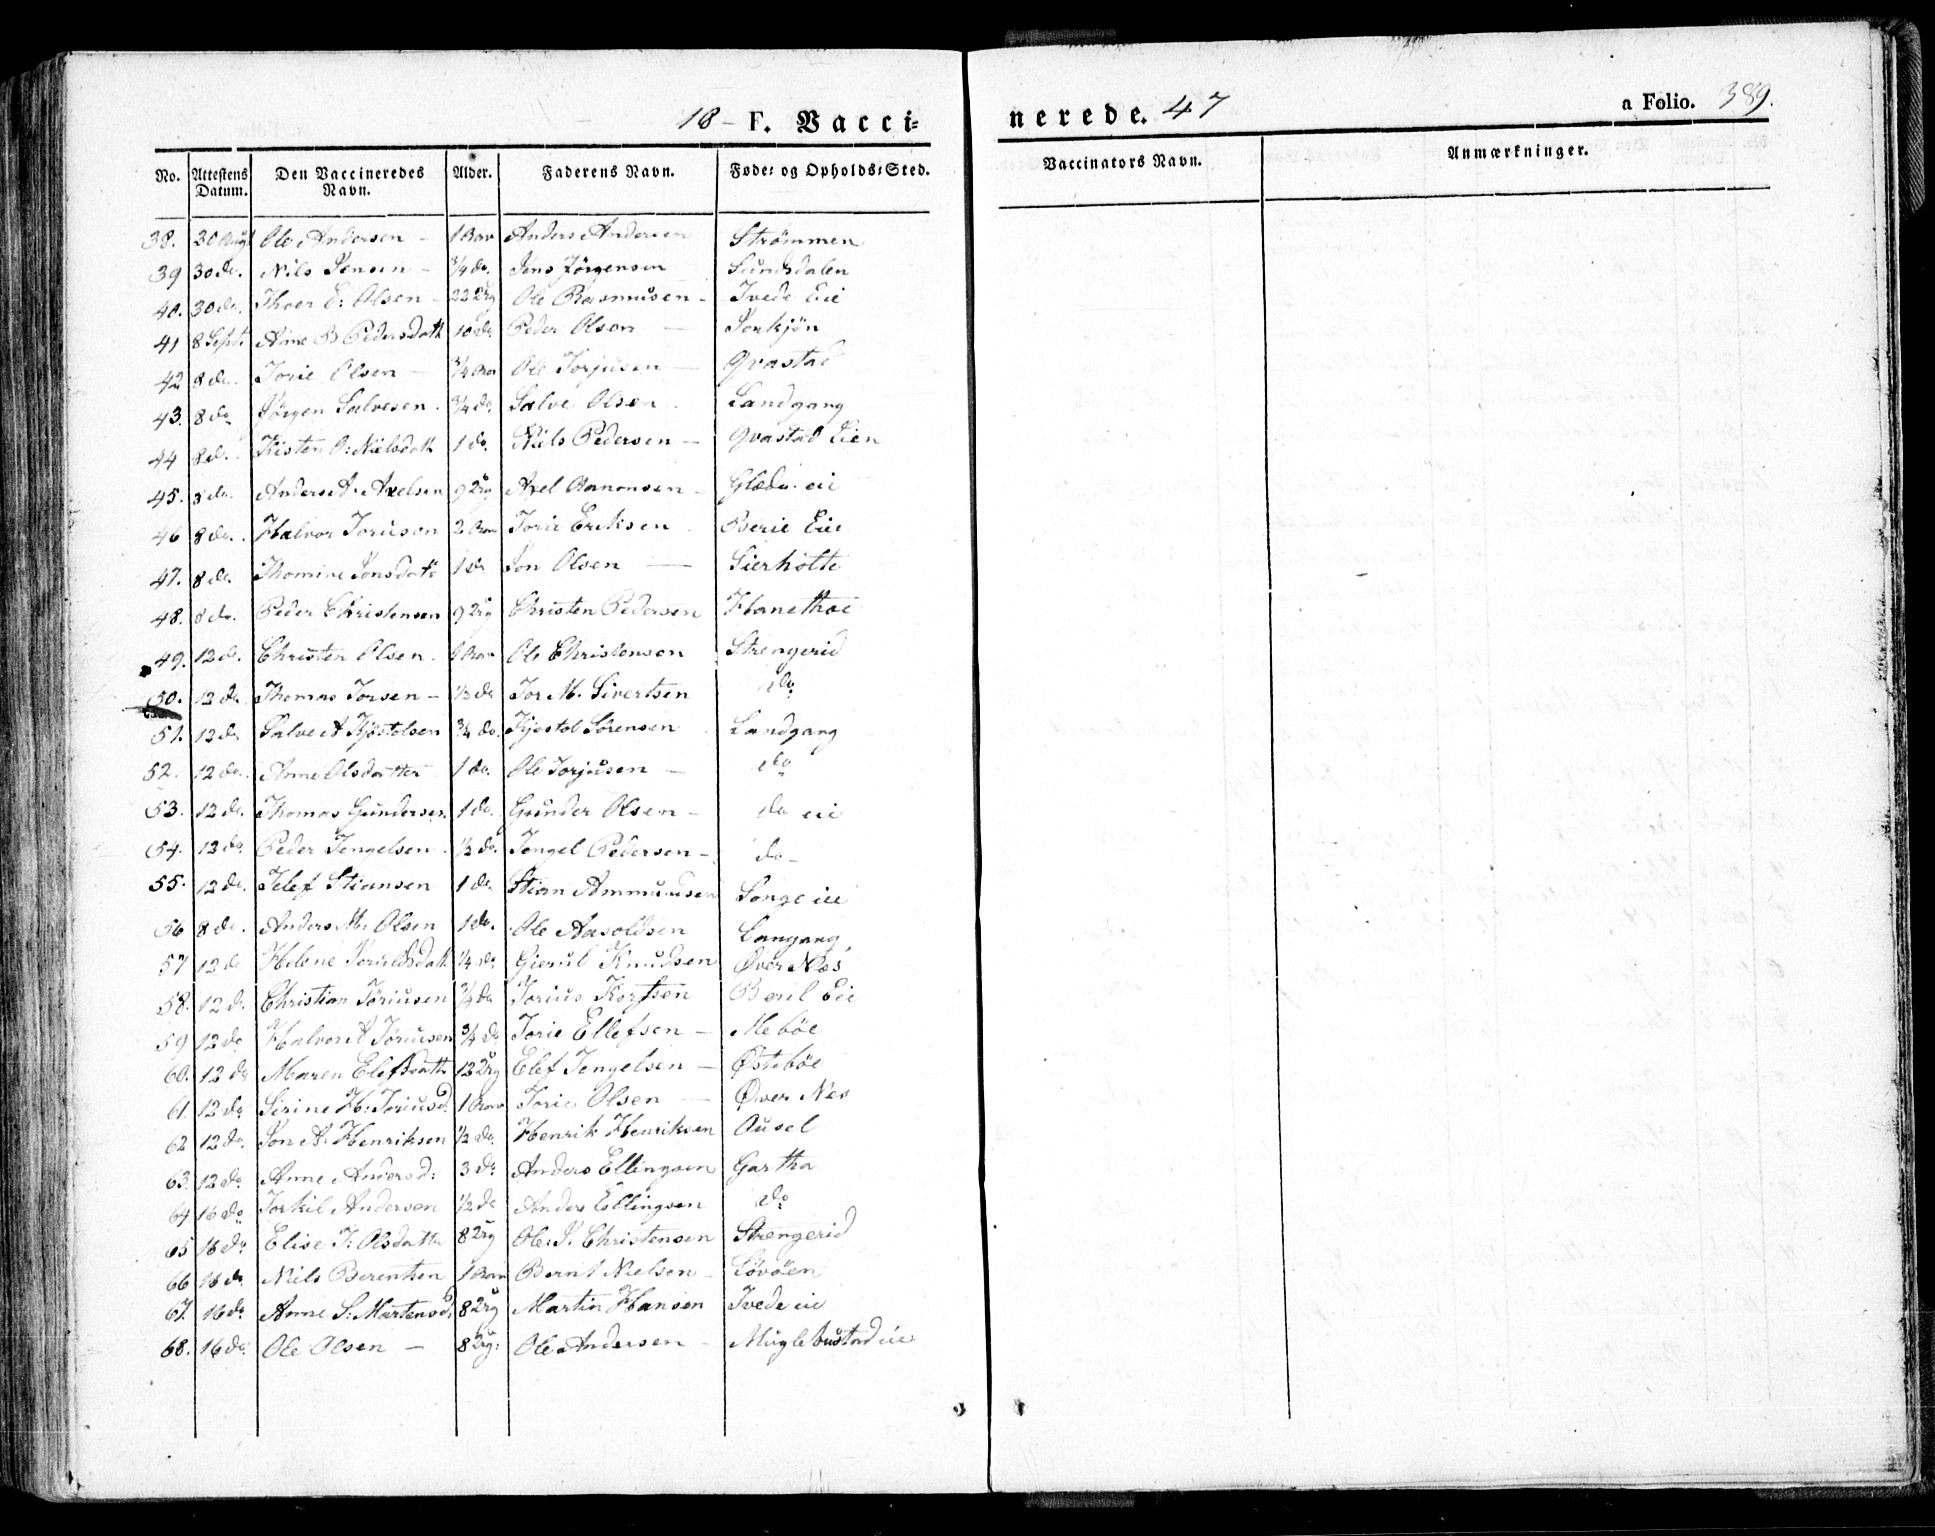 18 - F. Vacci-
nerede. 47
a Folio. 389.
No. Attestens Datum. Den Vaccineredes Navn. Alder. Faderens Navn. Føde- og Opholds-Sted. Vaccinators Navn. Anmærkninger.
38. 30 Augt Ole Andersen - 1 Aar Anders Andersen Strømmen
39 30 do. Nils Jensen - 3/4 do. Jens Jörgensen Sundsdalen
40. 30 do. Thoer E: Olsen - 22 Ug Ole Rasmusen - Tvede Eie
41 8 Sept. Anne B Pedersdatt 10 do Peder Olsen - Torkjøn
42 8 do. Torie Olsen - 3/4 Aar Ole Torjusen - Qvastad
43. 8 do Jörgen Salvesen. 3/4 do. Salve Olsen. Landgang
44 8 do. Kisten O: Nielsdatt 1 do. Niels Pedersen - Qvastad Eien
45. 8 do. Anders A: Axelsen 9 Ug Axel Aanonsen - Glæde eie
46 8 do. Halvor Joriuson 2 Aar Torie Eriksen Berie Eie
47. 8 do. Thomine Jonsdatt 1 do Jon Olsen - Lierholte
48. 8 do. Peder Christensen 9 Ug Christen Pedersen Hanethoi
49. 12 do. Christen Olsen. 1 Aar Ole Christensen Strengerid
50. 12 do Thomas Torsen - 1/2 do Tor M. Sivertsen do
51. 12 do Salve A Kjöstolsen 3/4 do. Kjøstol Sörensen Landgang
52. 12 do. Anne Olsdatter 1 do. Ole Torjusen - do
53. 12 do. Thomas Gundersen 1 do. Gunder Olsen - do eie
54. 12 do Peder Tengelsen. 1/2 do. Tengel Pedersen - do -
55. 12 do. Telef Stiansen 1 do Stian Ammundsen Songe eie
56 8 do. Anders M: Olsen 1 do. Ole Aasoldsen Langang
57 12 do Helene Jeruldsdatt 1/4 do Gierul Knudsen Øver Næs
58. 12 do. Christian Töriusen 3/4 do Torius Korfsen Beril Eie
59 12 do Halvor A Töriusen 3/4 do Torie Ellefsen - Mebøe
60. 12 do Maren Elefsdatt 12 Ug Elef Tengelsen - Østebøe
61. 12 do Sirine H: Toriusd. 1 Aar Torie Olsen - Øver Nes
62 12 do. Jon A: Henriksen 1/2 do. Henrik Henriksen Ausel
63. 12 do. Anne Andersd: 3 do Anders Ellingsen Gartha
64 16 do Torkil Andersen 1/2 do Anders Ellingsen do
65 16 do Elise T: Olsdatte 8 Ug Ole J. Christensen Strengerid
66 16 do Nils Berentsen 1 Aar Bernt Nielsen - Lövöen
67. 16 do Anne S: Martensd. 8 Ug Martin Hansen Tvede eie
68. 16 do. Ole Olsen - 8 Ug: Ole Andersen - Muglebustad eie